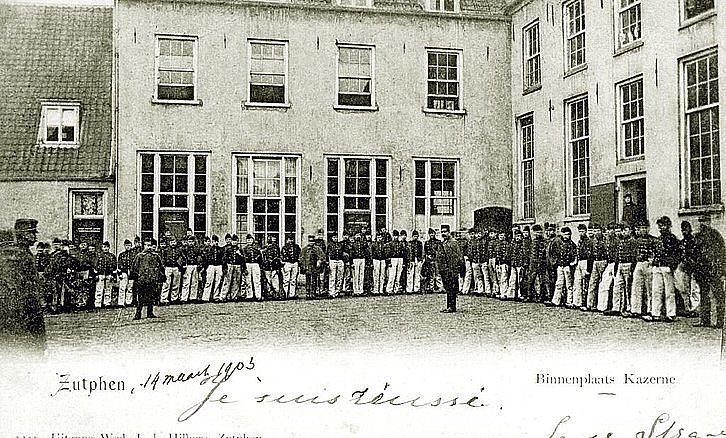 Zutphen, 14 maart 1903
Binnenplaats Kazerne
Je suis réussé.
Uitgave Wed. J. L. Hilbers, Zutphen